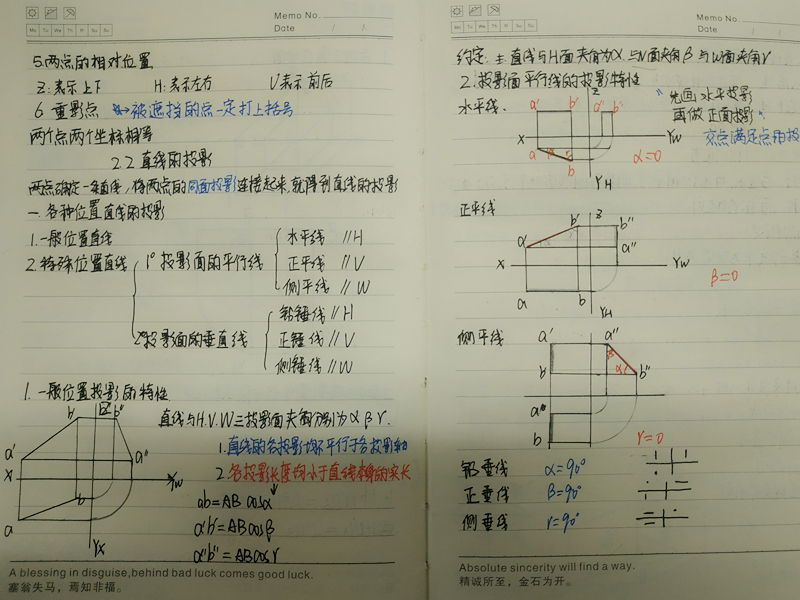 Memo No.
Date / /
Mo Tu We Th Fr Sa Su
5.两点的相对位置
Z:表示上下 H:表示左右 V表示前后
6 重影点 被遮挡的点一定打上括号
两个点两个坐标相等
2.2 直线的投影
两点确定一条直线,将两点的同面投影连接起来,就得到直线的投影
一.各种位置直线的投影
1.一般位置直线
2.特殊位置直线
1°投影面的平行线
水平线 //H
正平线 //V
侧平线 //W
2°投影面的垂直线
铅锤线 //H
正锤线 //V
侧锤线 //W
1.一般位置投影的特性
直线与H.V.W三投影面夹角分别为α β γ.
1.直线的各投影均不平行于各投影轴
2.各投影长度均小于直线本身的实长
ab=ABcosα
a'b'=ABcosβ
a"b"=ABcosγ
b' Z b"
a' a"
X Yw
b
a
YX
A blessing in disguise,behind bad luck comes good luck.
塞翁失马,焉知非福。
Memo No.
Date / /
Mo Tu We Th Fr Sa Su
约定:主直线与H面夹角为α.与V面夹角β与W面夹角γ
2.投影面平行线的投影特性
水平线.
"先画水平投影
再做正面投影".
交点满足点的投
a' b' Z a" b"
X YW
a b
α=0
YH
正平线
b' Z b"
a' a"
X YW
β=0
a b
YH
侧平线
a' a"
β
b' α b"
a
b
γ=0
铅垂线 α=90°
正垂线 β=90°
侧垂线 γ=90°
Absolute sincerity will find a way.
精诚所至,金石为开。